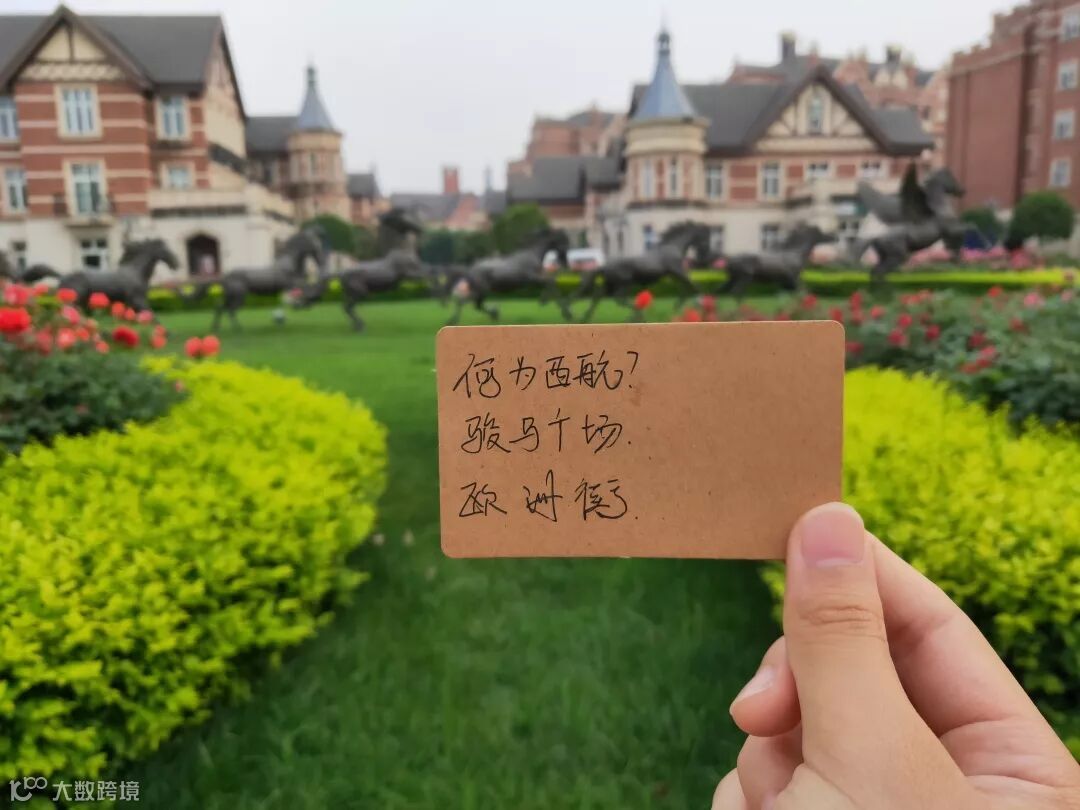 何为西航?
骏马广场.
欧洲街.
大数跨境